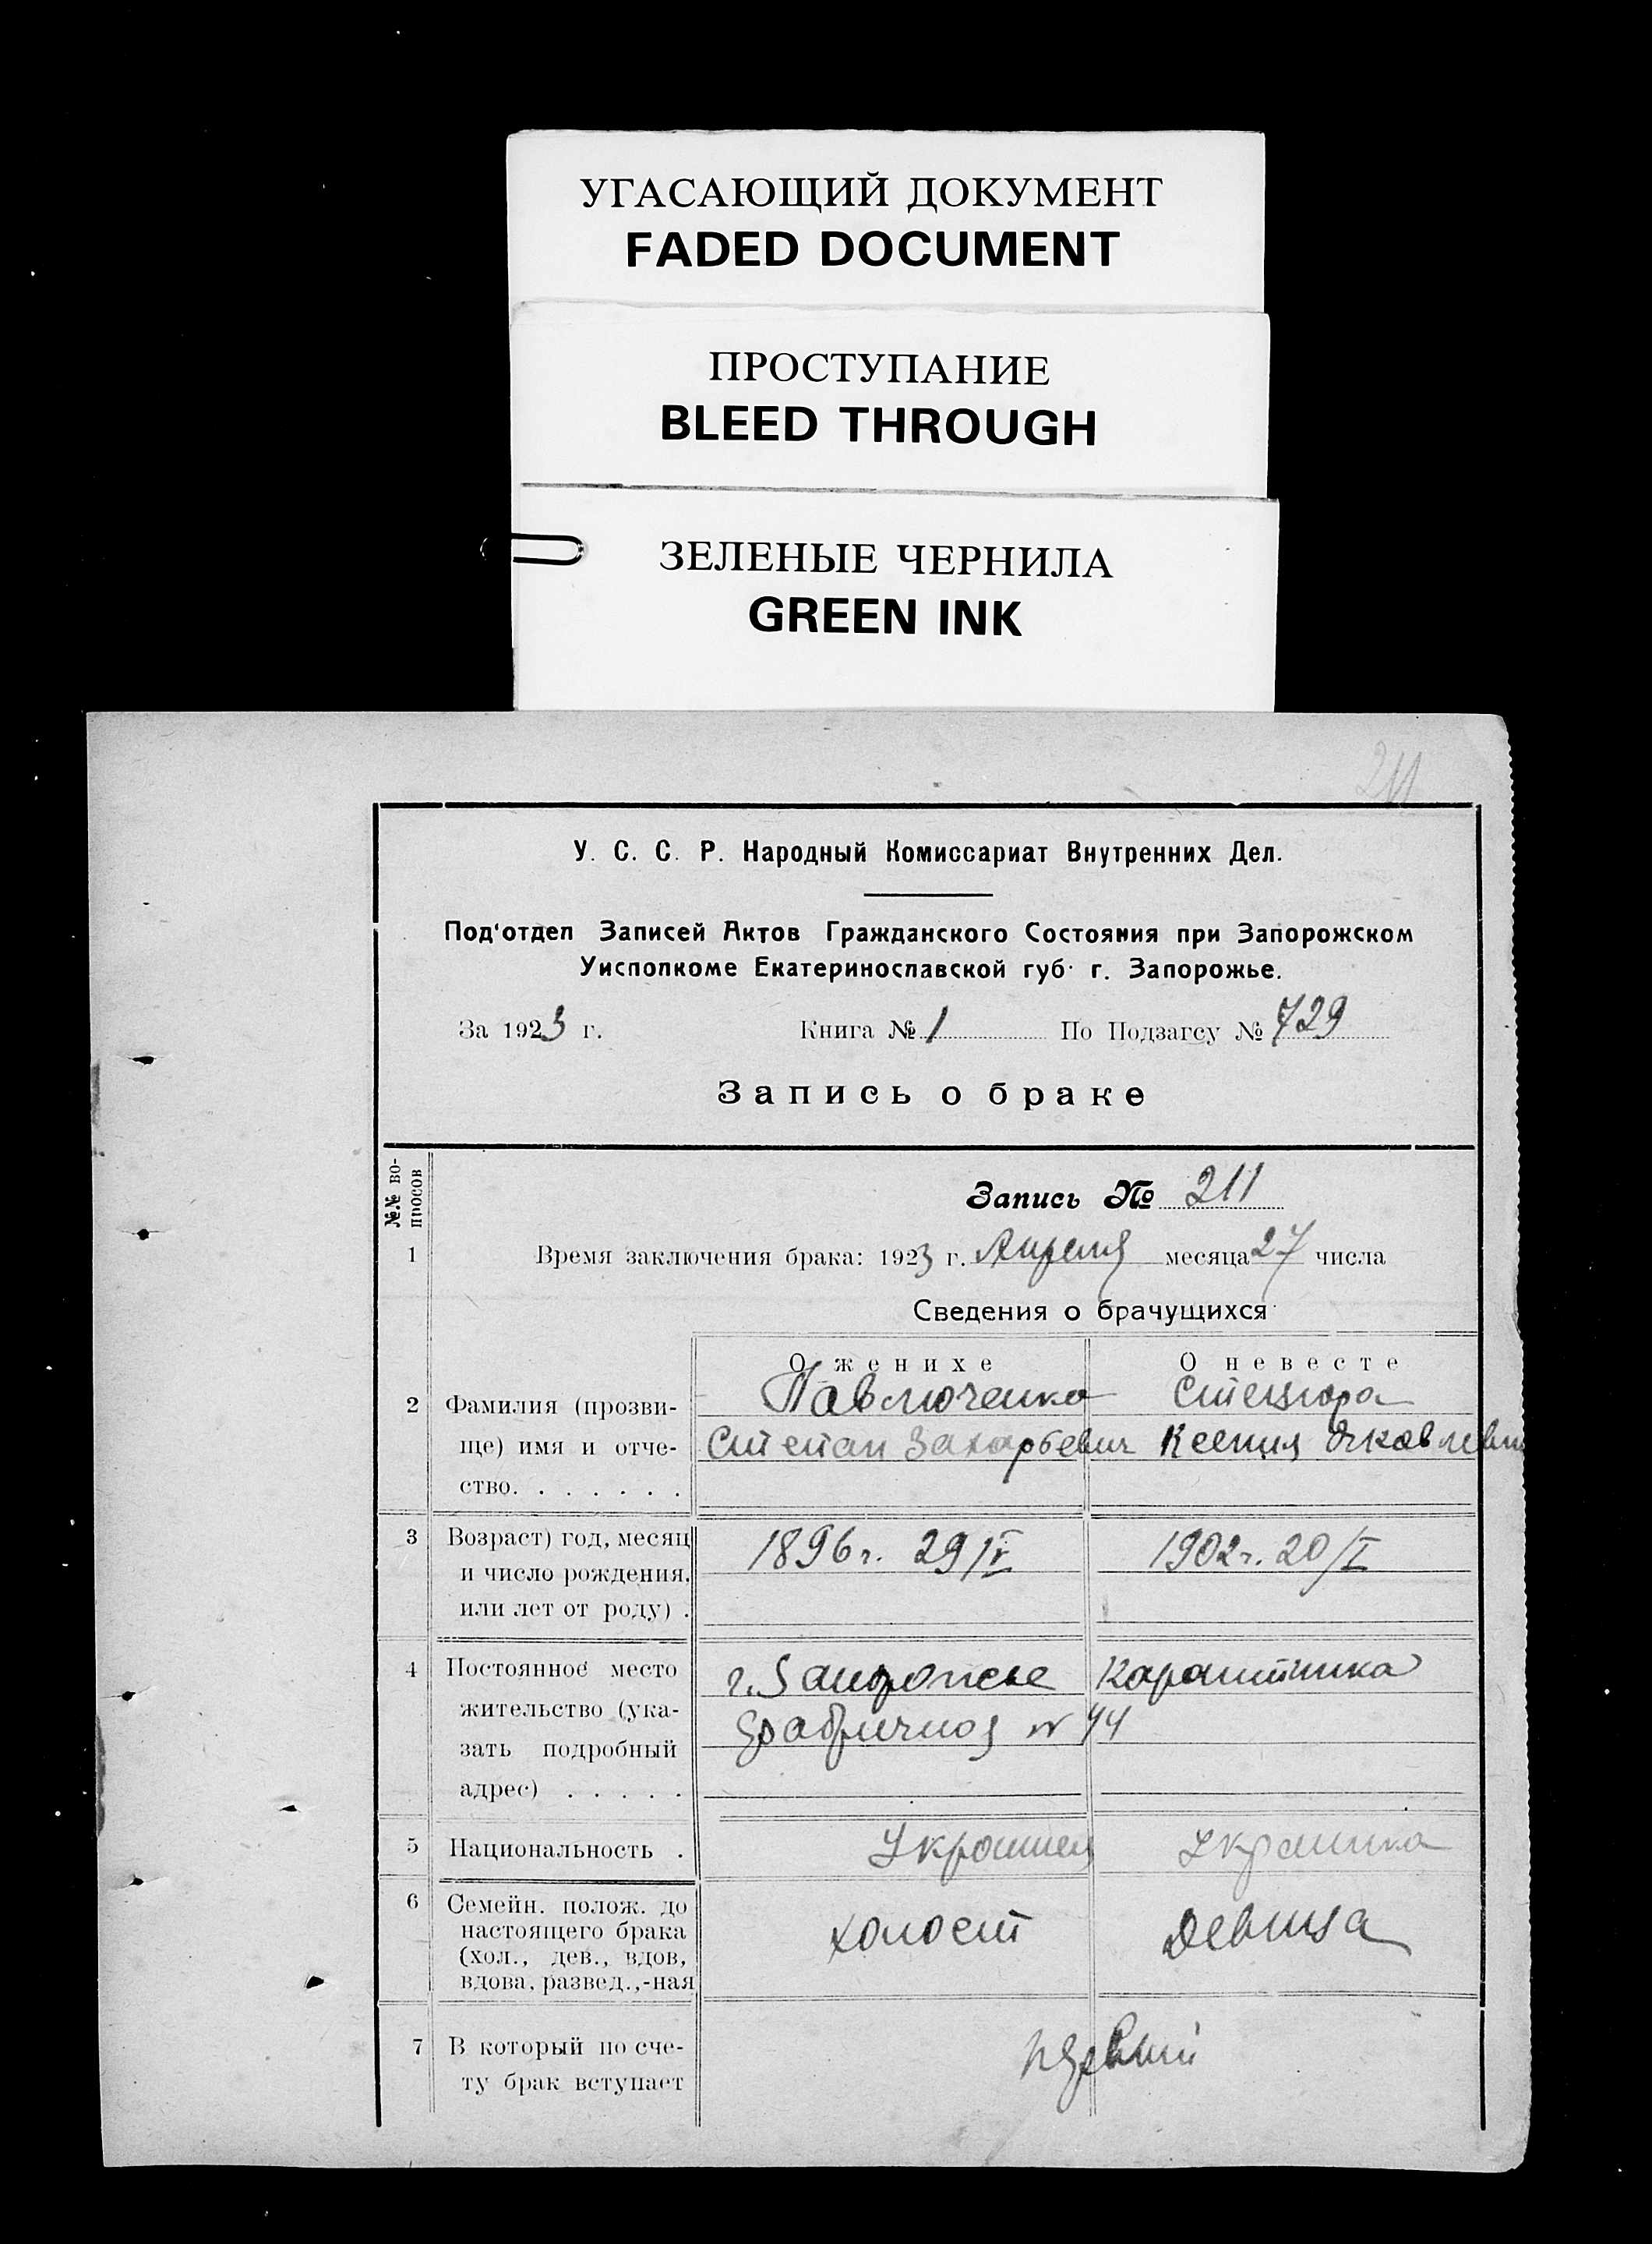 УГАСАЮЩИЙ ДОКУМЕНТ
FADED DOCUMENT
ПРОСТУПАНИЕ
BLEED THROUGH
ЗЕЛЕНЫЕ ЧЕРНИЛА
GREEN INK
211
У. С. С. Р. Народный Комиссариат Внутренних Дел.
Под'отдел Записей Актов Гражданского Состояния при Запорожском
Уисполкоме Екатеринославской губ. г. Запорожье.
За 1923 г. Книга № 1 По Подзагсу № 729
Запись о браке
№№ во-
просов
Запись № 211
1 Время заключения брака: 1923 г. Апреля месяца 27 числа
Сведения о брачущихся
О женихе О невесте
2 Фамилия (прозви- Павлюченко
ще) имя и отче- Степан Захарьевич Ксения
ство. . . . . . .
3 Возраст) год, месяц 1896 г. 29/IV 1902 г. 20/I
и число рождения,
или лет от роду) .
4 Постоянное место г. Запорожье
жительство (ука- Фабричная № 44
зать подробный
адрес) . . . . .
5 Национальность . Украинец Украинка
6 Семейн. полож. до
настоящего брака холост Девица
(хол., дев., вдов,
вдова, развед.,-ная
7 В который по сче- первый
ту брак вступает